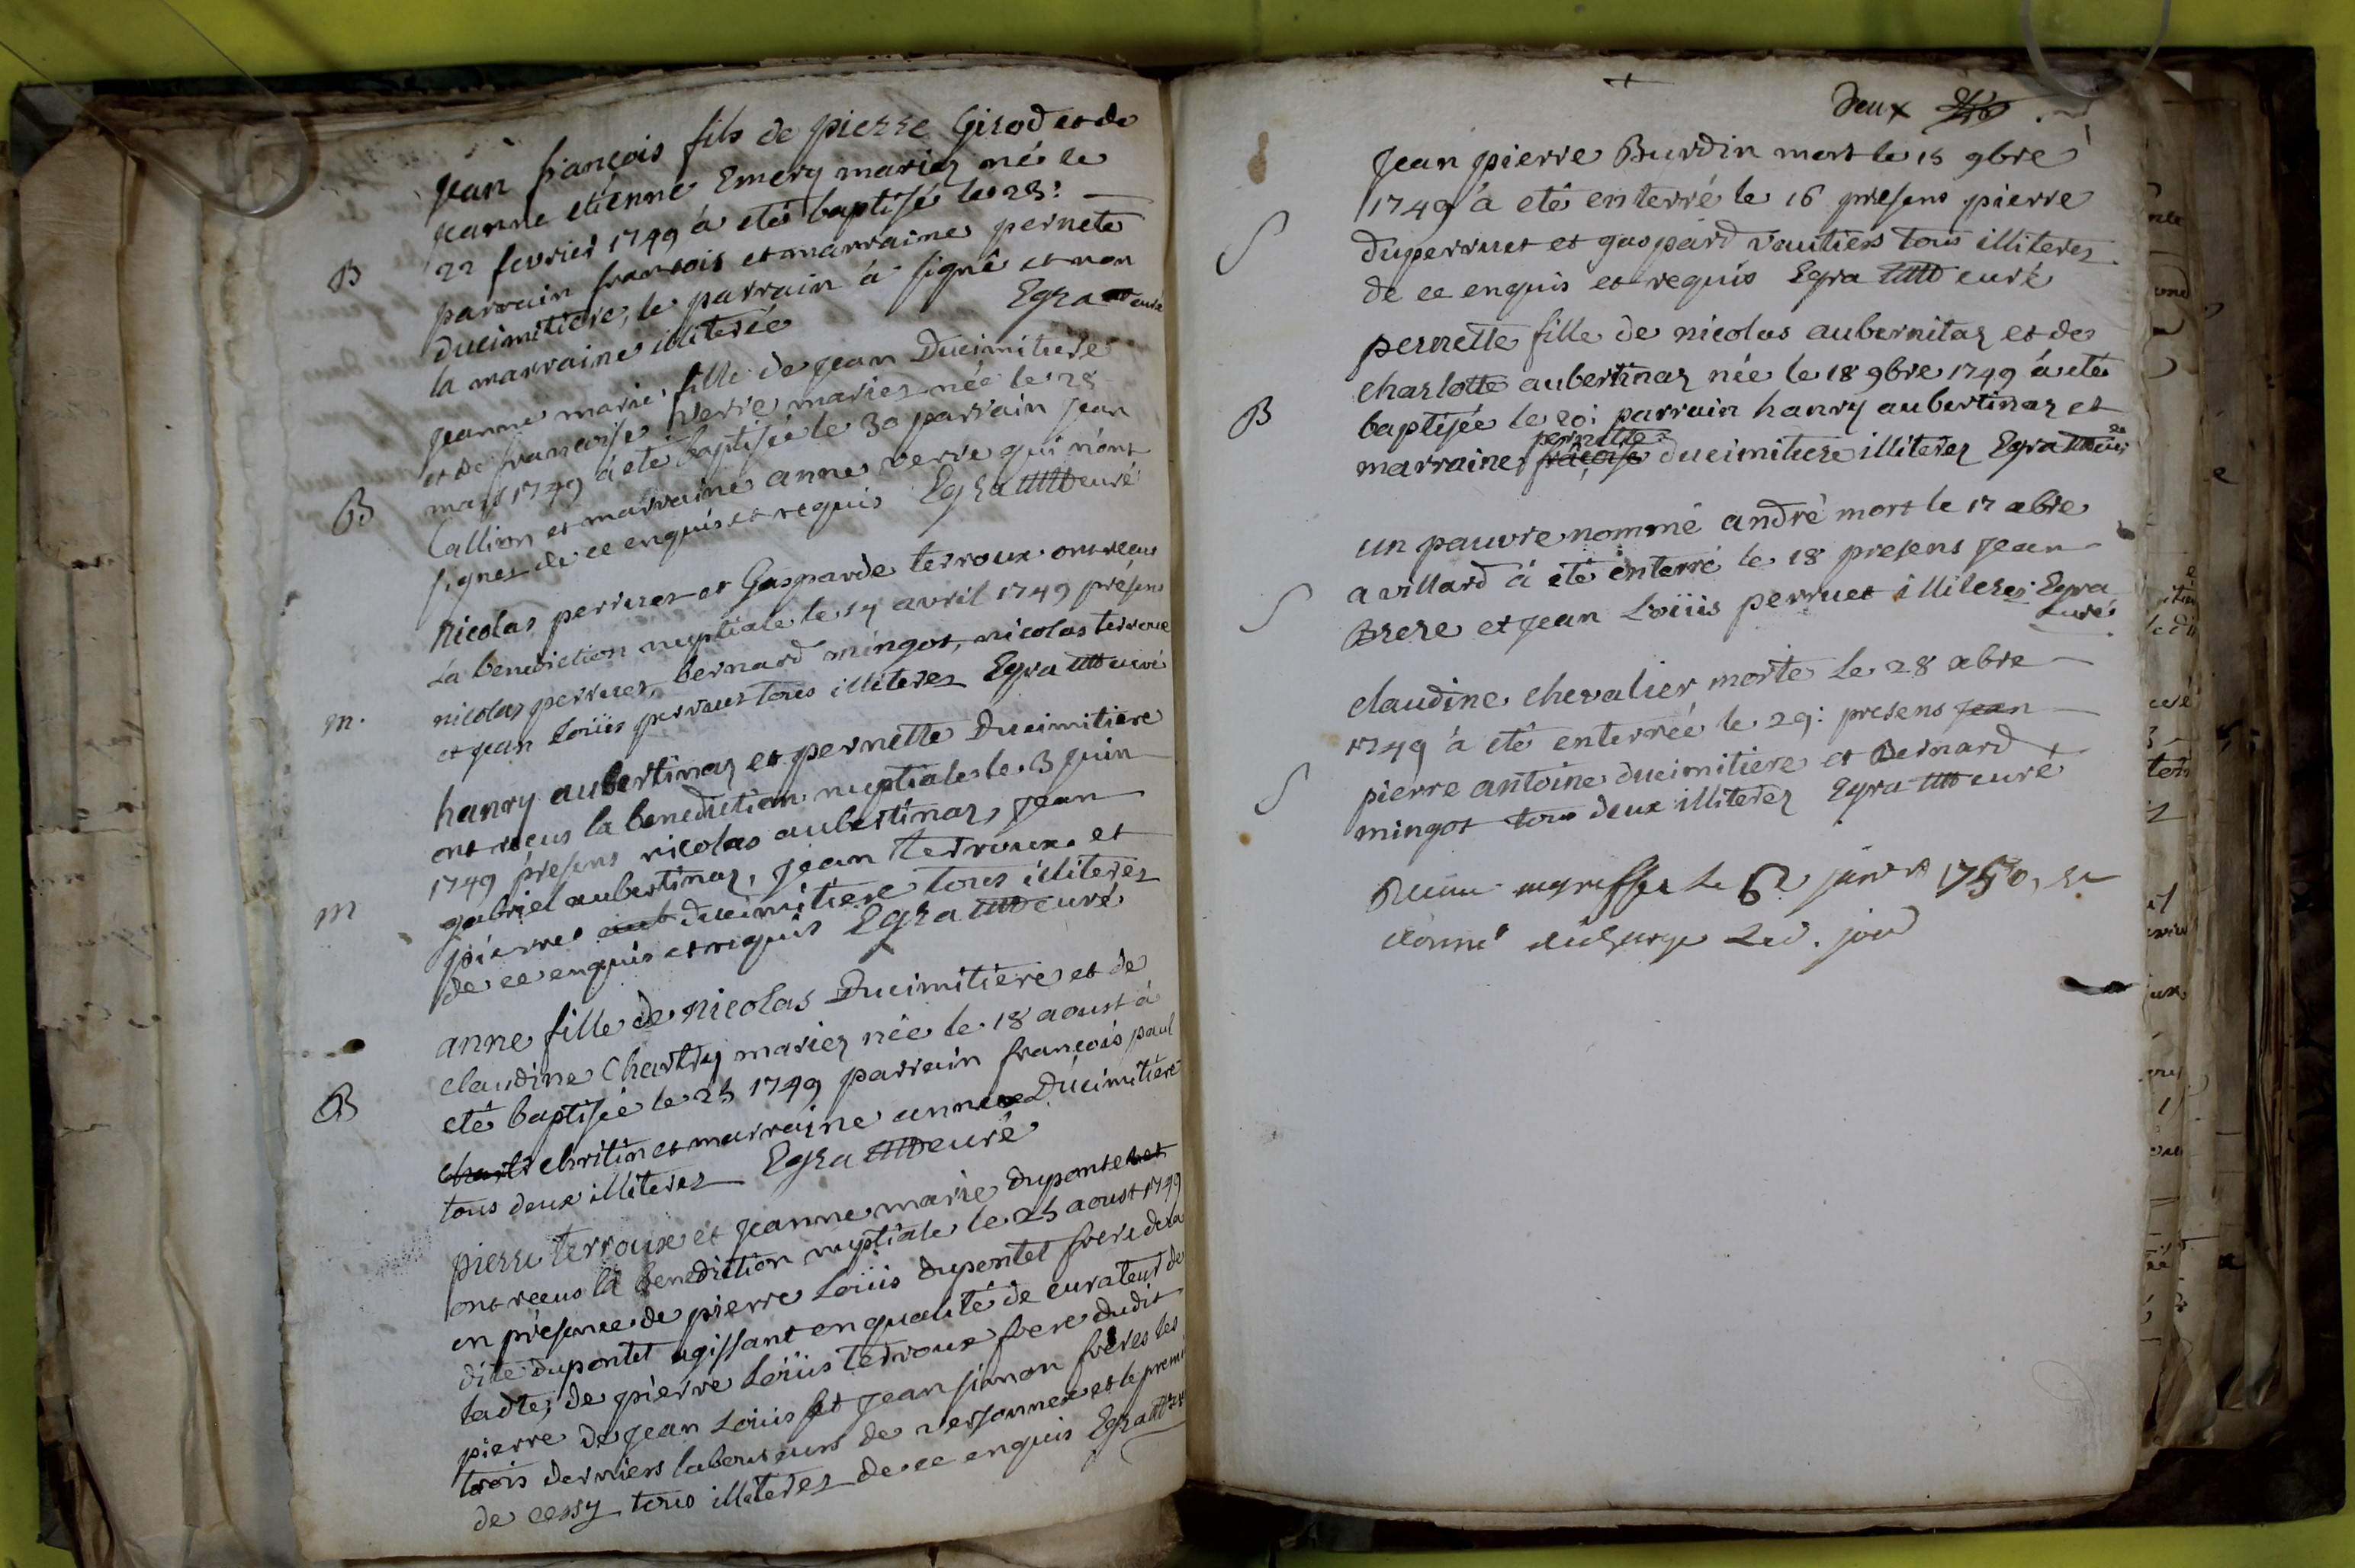 Jean françois fils de pierre Girod et de
Jeanne etienne Emery mariez né le
22 fevrier 1749 à eté baptisé le 23:
B
parrain francois et marraine pernete
ducimitiere, le parrain à signé et non
la marraine illiterée Egra curé
Jeanne marie fille de Jean Ducimitiere
et de francoise Verre mariez née le 28
mars 1749 à eté baptisée le 30 parrain Jean
B
Callion et marraine anne verre qui n'ont
signez de ce enquis et requis Egra curé
Nicolas perruet et Gasparde terroux ont receus
la benediction nuptiale le 14 avril 1749 présens
m.
nicolas perruet, bernard mingot, nicolas terroux
et jean loüis perruet tous illiterez Egra curé
hanry aubertinaz et pernette Ducimitiere
ont receus la benediction nuptiale le 3 juin
1749 présens nicolas aubertinaz, jean
m
gabriel aubertinaz, Jean terroux et
pierre aub ducimitiere tous illiterez
de ce enquis et requis Egra curé
anne fille de Nicolas Ducimitiere et de
claudine Chartry mariez née le 18 aoust à
B
eté baptisée le 25 1749 parrain françois paul
chritin et marraine anne Ducimitiere
tous deux illiterez Egra curé
pierre terroux et Jeanne marie dupontet
ont receus la benediction nuptiale le 25 aoust 1749
en présence de pierre Loüis dupontet frere de la
dite dupontet agissant en qualité de curateur de
ladte, de pierre Loüis terroux frere dudit
pierre de Jean Loüis et Jean simon freres les
trois derniers laboureurs de versonnex et le premi
de cessy tous illiterez de ce enquis Egra
Deux
Jean pierre Burdin mort le 15 9bre
1749 à eté enterré le 16 presens pierre
S
duperruet et gaspard vautiers tous illiterez
de ce enquis et requis Egra curé
pernette fille de nicolas aubernitaz et de
charlotte aubertinaz née le 18 9bre 1749 à eté
B
baptisée le 20: parrain hanry aubertinaz et
pernette
marraine françoise ducimitiere illiterez Egra
un pauvre nommé andré mort le 17 xbre
a villard à eté enterré le 18 presens Jean
S
Brere et Jean Loüis perruet illiterez Egra
curé
claudine chevalier morte le 28 xbre
1749 à eté enterrée le 29: presens Jean
S
pierre antoine ducimitiere et Bernard
mingot tous deux illiterez Egra curé
au greffe le 1750, et
donné décharge led. jour